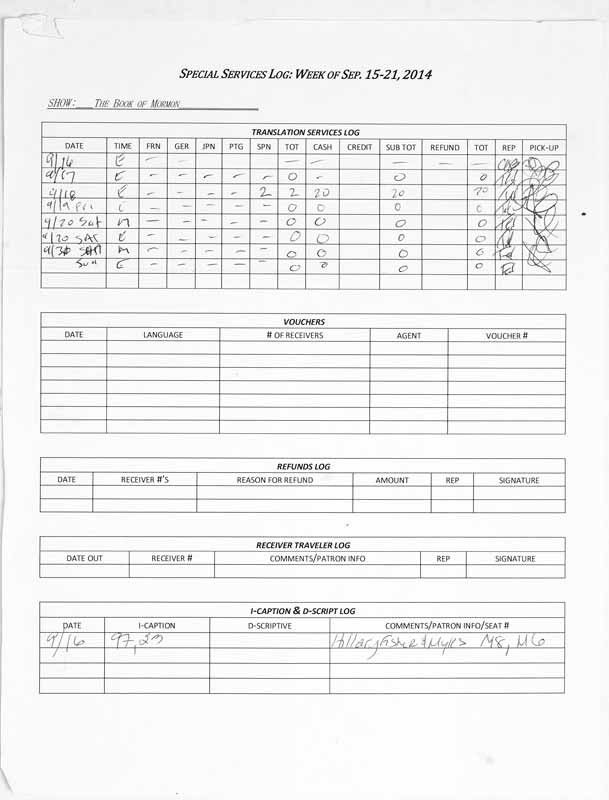 SPECIAL SERVICES LOG: WEEK OF SEP. 15-21, 2014
SHOW: THE BOOK OF MORMON
TRANSLATION SERVICES LOG
DATE TIME FRN GER JPN PTG SPN TOT CASH CREDIT SUB TOT REFUND TOT REP PICK-UP
9/16 E – – – – – – –
9/17 E – – – – – 0 – 0 0
9/18 E – – – – 2 2 20 20 20
9/19 Fri – – – – – 0 0 0 0
9/20 Sat M – – – – – 0 0 0 0
9/20 SAT E – – – – – 0 0 0 0
M – – – – – 0 0 0 0
Sun E – – – – – 0 0 0 0
VOUCHERS
DATE LANGUAGE # OF RECEIVERS AGENT VOUCHER #
REFUNDS LOG
DATE RECEIVER #'S REASON FOR REFUND AMOUNT REP SIGNATURE
RECEIVER TRAVELER LOG
DATE OUT RECEIVER # COMMENTS/PATRON INFO REP SIGNATURE
I-CAPTION & D-SCRIPT LOG
DATE I-CAPTION D-SCRIPTIVE COMMENTS/PATRON INFO/SEAT #
9/16 97, 23 Hillary Fisher & Myles M8, M6